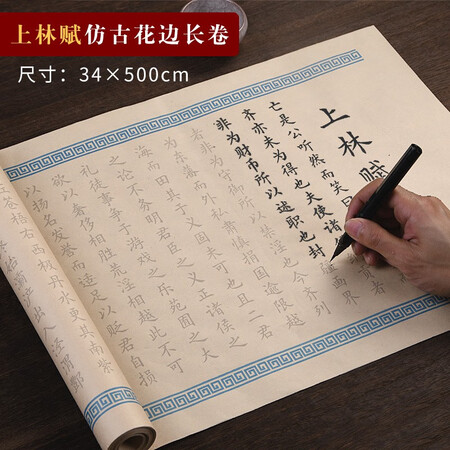 上林赋仿古花边长卷
尺寸：34×500cm
上林赋
亡是公听然而笑曰
齐亦未为得也夫使诸
非为财币所以述职也封
者非为守御所以禁淫也今齐列
为东藩而外私肃慎捐国逾限越
海而田其于义固未可也且二君
之论不务明君臣之义正诸侯之
礼徒事争于游戏之乐苑囿之大
欲以奢侈相胜荒淫相越此不可
以扬名发誉而适足以贬君自损
苍梧右西极丹水更其南紫